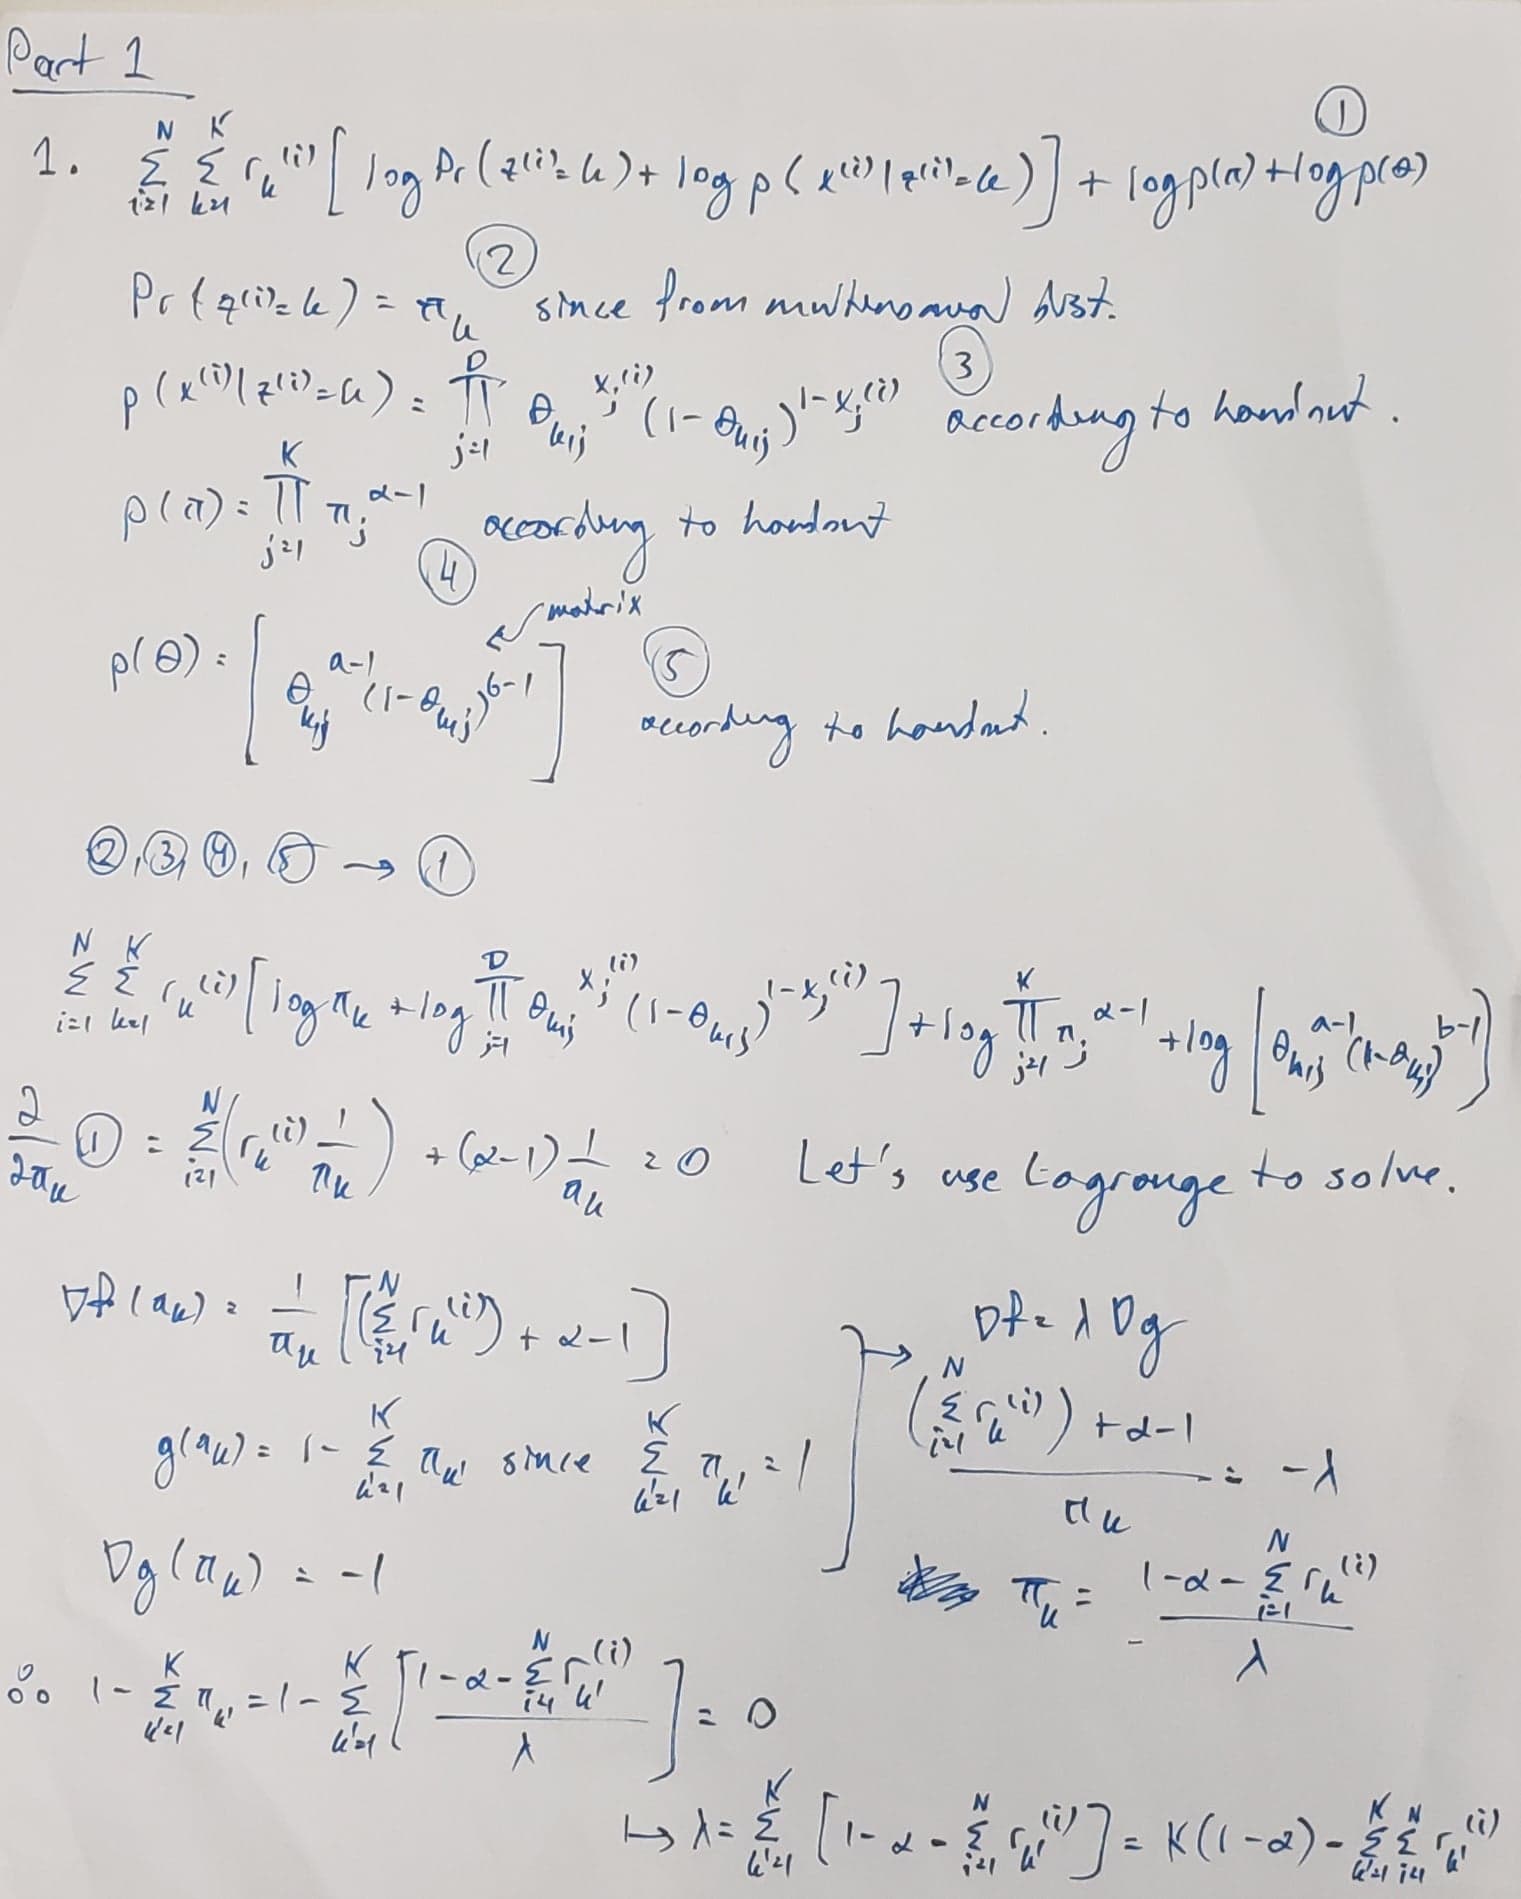 Part 1
①
1. $\sum_{i=1}^{N} \sum_{k=1}^{K} r_k^{(i)} [ \log Pr(z^{(i)}=k) + \log p(x^{(i)}|z^{(i)}=k) ] + \log p(\pi) + \log p(\theta)$
$Pr(z^{(i)}=k) = \pi_k$ ② since from multinomial dist.
$p(x^{(i)}|z^{(i)}=k) = \prod_{j=1}^{D} \theta_{k,j}^{x_j^{(i)}} (1-\theta_{k,j})^{1-x_j^{(i)}}$ ③ according to handout.
$p(\pi) = \prod_{j=1}^{K} \pi_j^{\alpha-1}$ ④ according to handout
matrix
$p(\theta) = [ \theta_{k,j}^{a-1} (1-\theta_{k,j})^{b-1} ]$ ⑤ according to handout.
②, ③, ④, ⑤ → ①
$\sum_{i=1}^{N} \sum_{k=1}^{K} r_k^{(i)} [ \log \pi_k + \log \prod_{j=1}^{D} \theta_{k,j}^{x_j^{(i)}} (1-\theta_{k,j})^{1-x_j^{(i)}} ] + \log \prod_{j=1}^{K} \pi_j^{\alpha-1} + \log [ \theta_{k,j}^{a-1} (1-\theta_{k,j})^{b-1} ]$
$\frac{\partial}{\partial \pi_k}$ ① $= \sum_{i=1}^{N} ( r_k^{(i)} \frac{1}{\pi_k} ) + (\alpha-1) \frac{1}{\pi_k} = 0$ Let's use Lagrange to solve.
$\nabla f(\pi_k) = \frac{1}{\pi_k} [ (\sum_{i=1}^{N} r_k^{(i)}) + \alpha - 1 ]$
$g(\pi_k) = 1 - \sum_{k'=1}^{K} \pi_{k'}$ since $\sum_{k'=1}^{K} \pi_{k'} = 1$
$\nabla g(\pi_k) = -1$
→ $\nabla f = \lambda \nabla g$
$\frac{(\sum_{i=1}^{N} r_k^{(i)}) + \alpha - 1}{\pi_k} = -\lambda$
$\pi_k = \frac{1-\alpha-\sum_{i=1}^{N} r_k^{(i)}}{\lambda}$
∴ $1 - \sum_{k'=1}^{K} \pi_{k'} = 1 - \sum_{k'=1}^{K} [ \frac{1-\alpha-\sum_{i=1}^{N} r_{k'}^{(i)}}{\lambda} ] = 0$
↦ $\lambda = \sum_{k'=1}^{K} [ 1-\alpha-\sum_{i=1}^{N} r_{k'}^{(i)} ] = K(1-\alpha) - \sum_{k'=1}^{K} \sum_{i=1}^{N} r_{k'}^{(i)}$